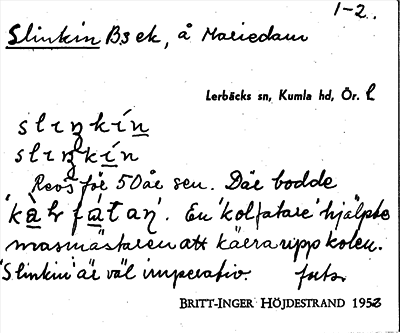 1-2.
Slinkin Bs ek, å Mariedam
Lerbäcks sn, Kumla hd, Ör. l
sliŋkín
sliŋkín
Revs för 50 år sen. Där bodde
'kàlfátaŋ'. En 'kolfatare' hjälpte
masmästaren att köra upp kolen.
'Slinkin' är väl imperativ.
BRITT-INGER HÖJDESTRAND 1953